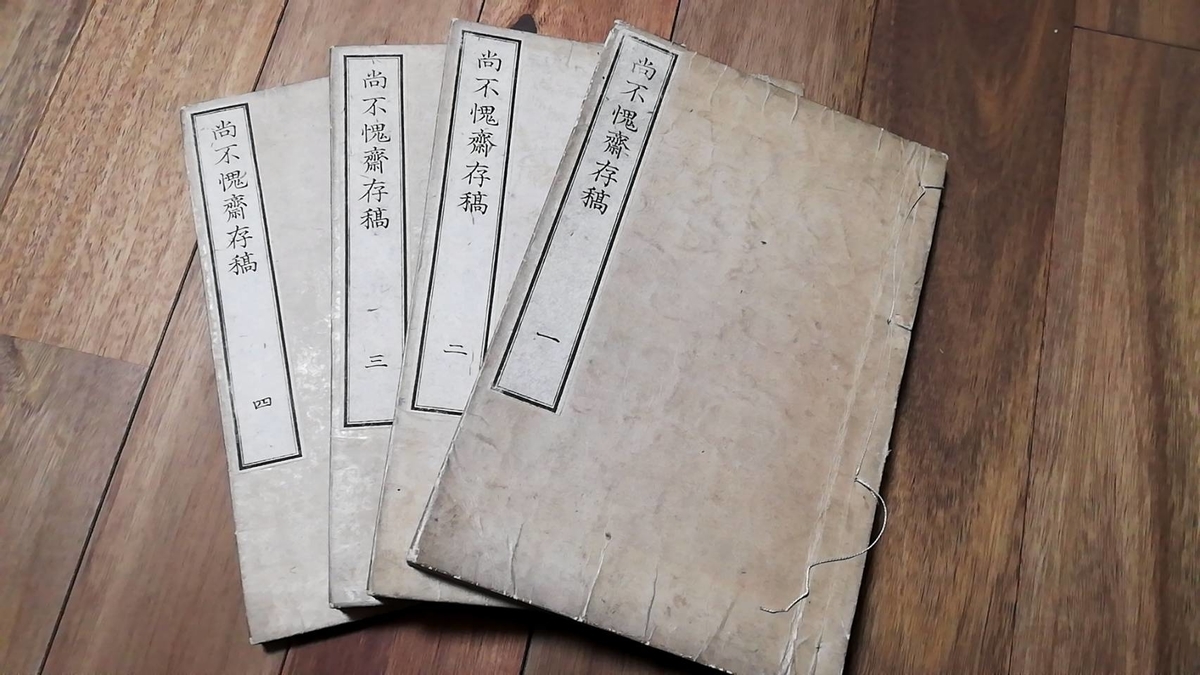 尚不愧齋存稿 一
尚不愧齋存稿 二
尚不愧齋存稿 三
尚不愧齋存稿 四